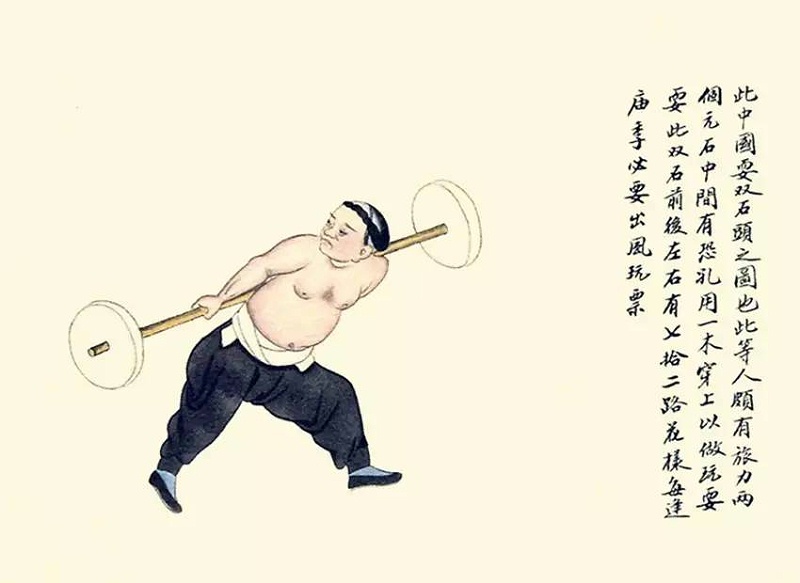 此中國耍双石頭之圖也此等人頗有旅力両
個元石中間有恐礼用一木穿上以做玩耍
耍此双石前後左右有七拾二路花樣每逢
庙季必要出風玩票